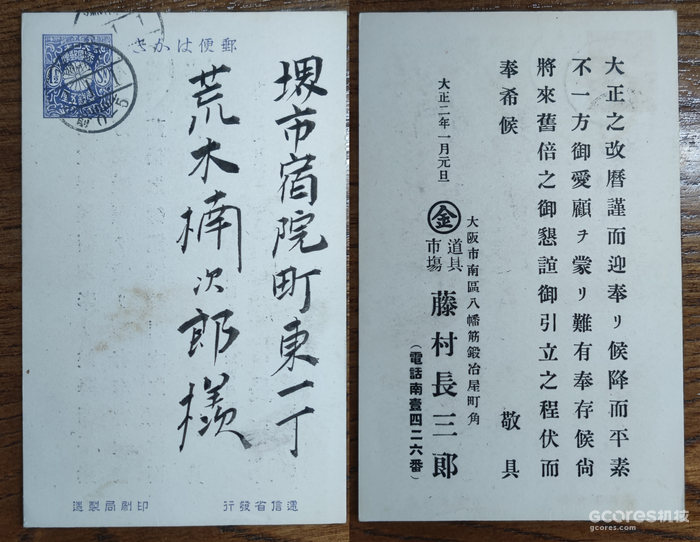 郵便はかき
堺市宿院町東一丁
荒木楠次郎様
遞信省發行
印刷局製造
大正之改曆謹而迎奉リ候降而平素
不一方御愛顧ヲ蒙リ難有奉存候尙
將來舊倍之御懇誼御引立之程伏而
奉希候 敬具
大正二年一月元旦
大阪市南區八幡筋鍛冶屋町角
金 道具市場 藤村長三郎
(電話南壹四二六番)
GCORES机核
gcores.com